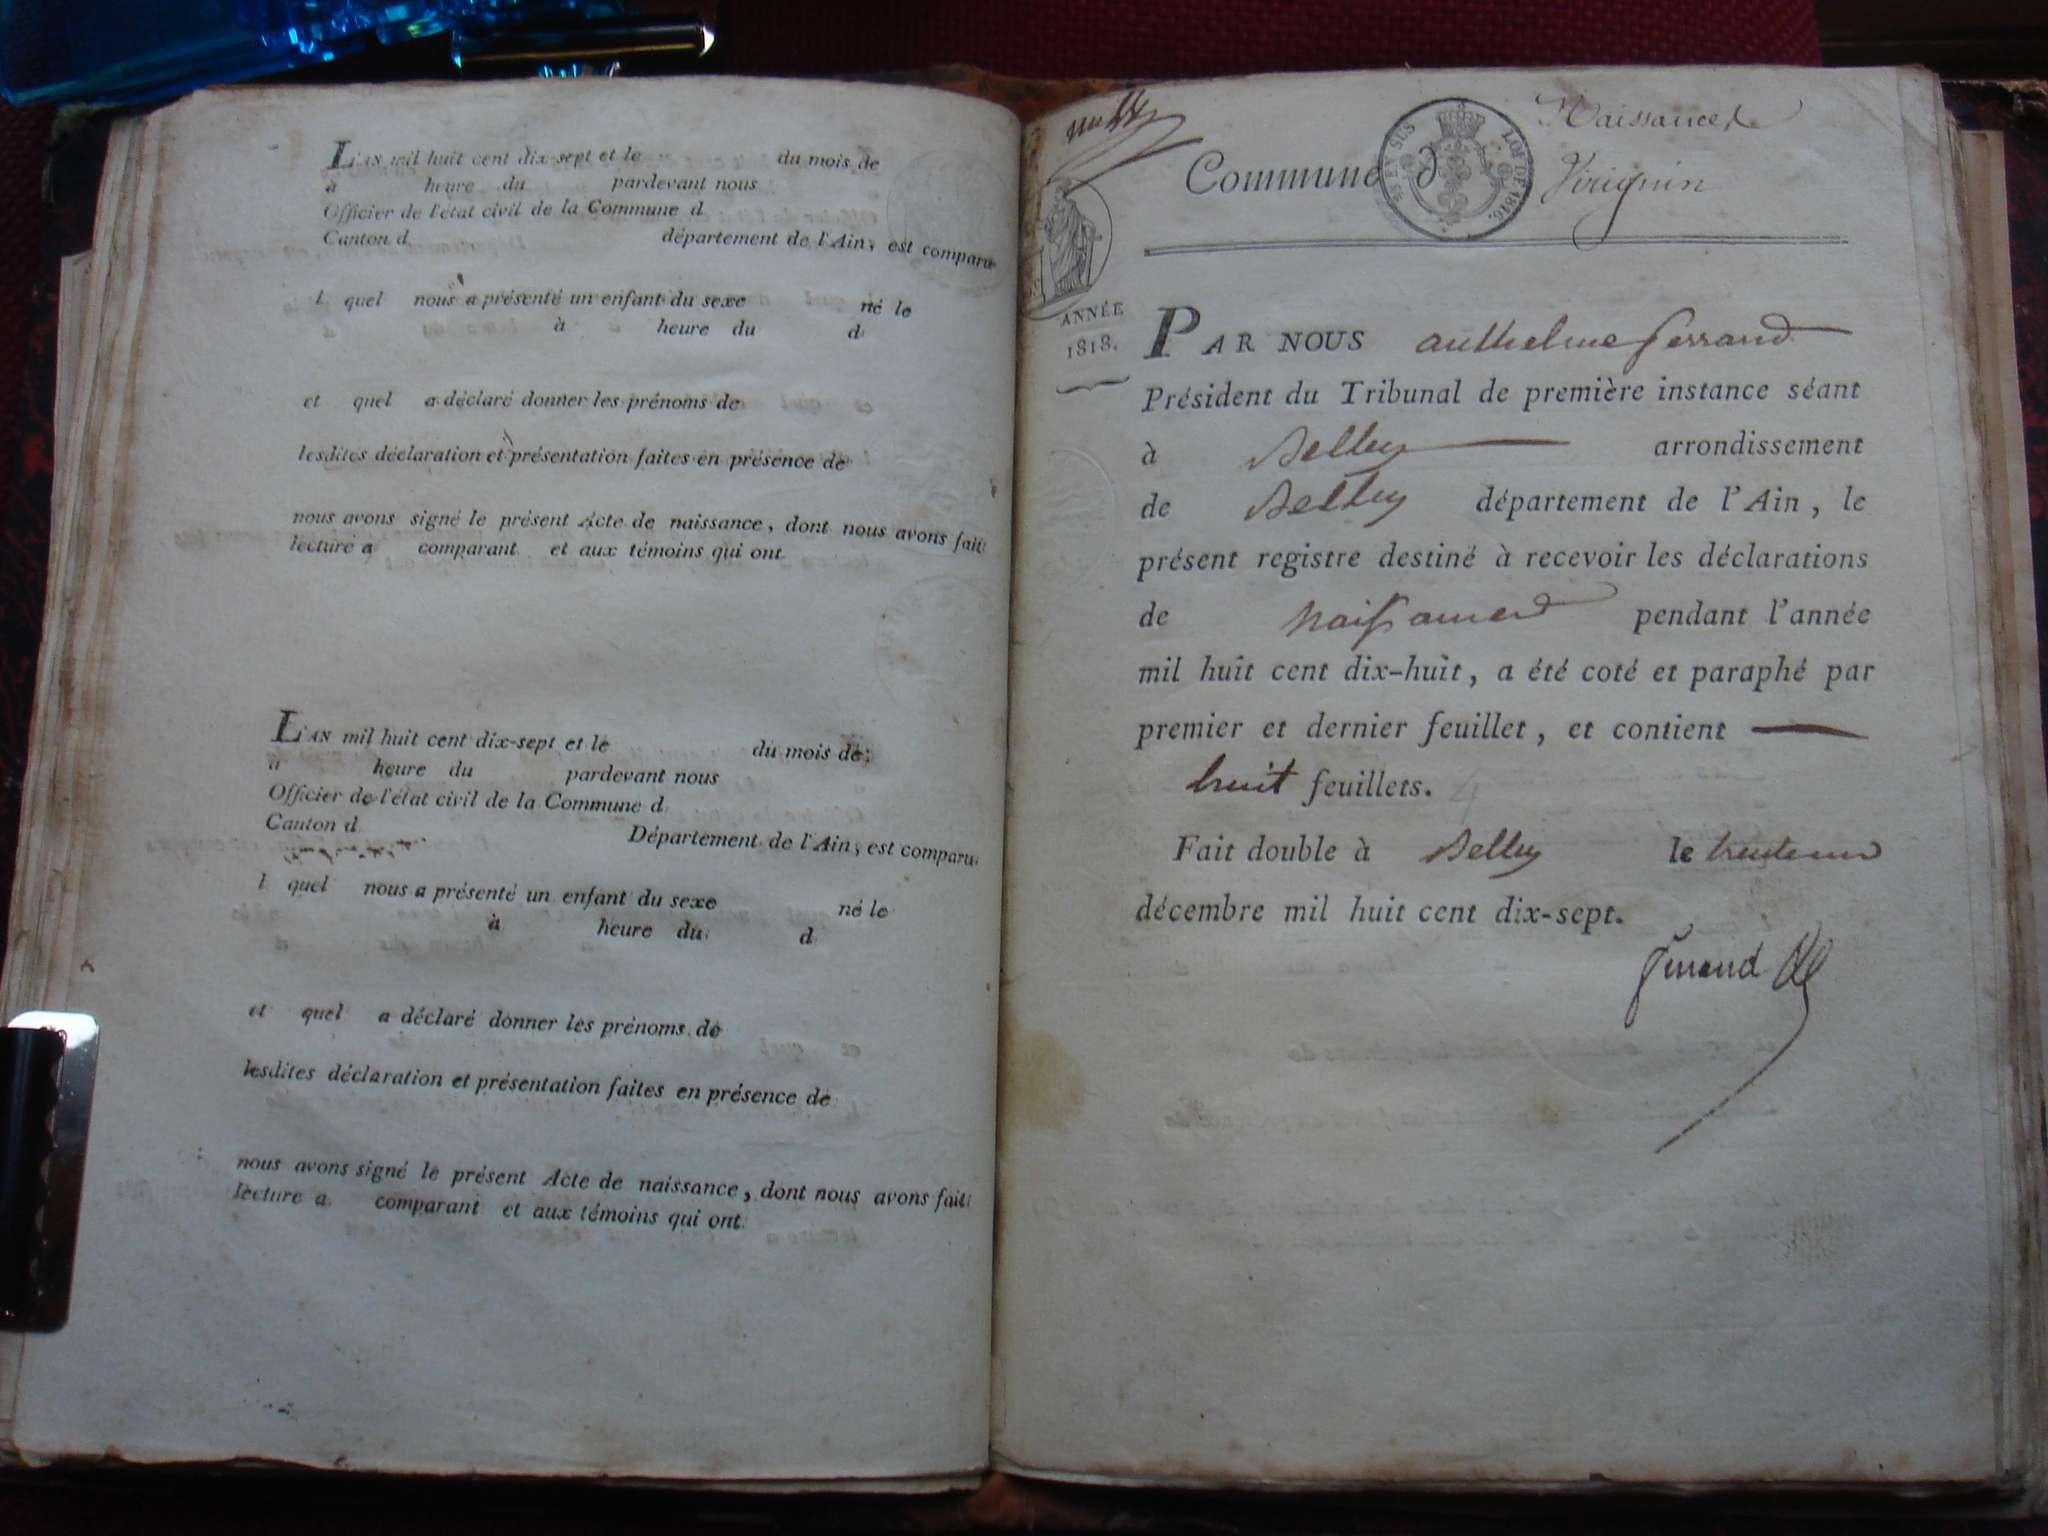 L'AN mil huit cent dix-sept et le du mois de
à heure du pardevant nous
Officier de l'état civil de la Commune d
Canton d département de l'Ain, est comparu
l quel nous a présenté un enfant du sexe né le
à heure du d
et quel a déclaré donner les prénoms de
lesdites déclaration et présentation faites en présence de
nous avons signé le présent Acte de naissance, dont nous avons fait
lecture a comparant et aux témoins qui ont
L'AN mil huit cent dix-sept et le du mois de
à heure du pardevant nous
Officier de l'état civil de la Commune d
Canton d Département de l'Ain, est comparu
l quel nous a présenté un enfant du sexe né le
à heure du d
et quel a déclaré donner les prénoms de
lesdites déclaration et présentation faites en présence de
nous avons signé le présent Acte de naissance, dont nous avons fait
lecture a comparant et aux témoins qui ont
Naissances
Commune d Virignin
EN SUS LOI DE 1816.
ANNÉE
1818.
PAR NOUS anthelme ferrand
Président du Tribunal de première instance séant
à Belley arrondissement
de Belley département de l'Ain, le
présent registre destiné à recevoir les déclarations
de Naissances pendant l'année
mil huit cent dix-huit, a été coté et paraphé par
premier et dernier feuillet, et contient
huit feuillets.
Fait double à Belley le trente un
décembre mil huit cent dix-sept.